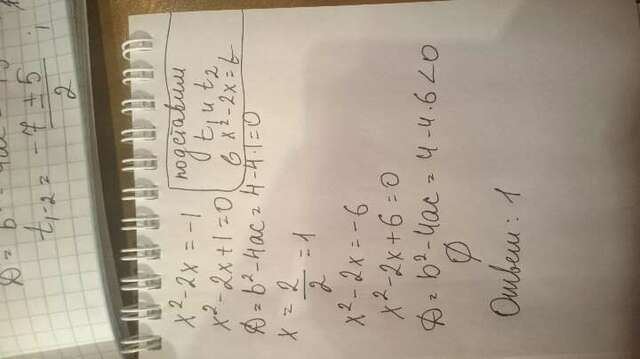 D = b² - 4ac =
t₁,₂ = -7 ± 5 / 2
x² - 2x = -1
подставим
t₁ и t₂
в x² - 2x = t
x² - 2x + 1 = 0
D = b² - 4ac = 4 - 4·1 = 0
x = 2/2 = 1
x² - 2x = -6
x² - 2x + 6 = 0
D = b² - 4ac = 4 - 4·6 < 0
∅
Ответ: 1